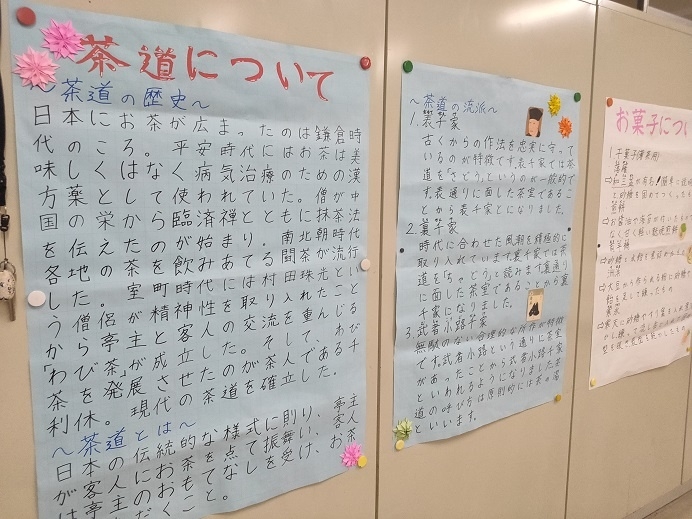 茶道について
～茶道の歴史～
日本にお茶が広まったのは鎌倉時
代のころ。平安時代にはお茶は美
味しくはなく病気治療のための漢
方薬として使われていた。僧が中
国の栄から臨済禅とともに抹茶法
を伝えたのが始まり。南北朝時代
各地の茶を飲みあてる闘茶が流行
した。室町時代には村田珠光とい
う僧侶が精神性を取り入れたこと
から亭主と客人の交流を重んじる
「わび茶」が成立した。そして、わび
茶を発展させたのが茶人である千
利休。現代の茶道を確立した。
～茶道とは～
日本の伝統的な様式に則り、亭主
が客人にお茶を点て振舞い、客人
は亭主のおもてなしを受け、お茶
だくこと。
～茶道の流派～
1.表千家
古くからの作法を忠実に守って
いるのが特徴です。表千家では茶
道を「さどう」というのが一般的で
す。表通りに面した茶室であるこ
とから表千家となりました。
2.裏千家
時代に合わせた風潮を積極的に
取り入れています。裏千家では茶
道を「ちゃどう」と読みます。裏通り
に面した茶室であることから裏
千家になりました。
3.武者小路千家
無駄のない合理的な所作が特徴
です。武者小路という通りに茶室
があったことから武者小路千家
といわれるようになりました。茶
道の呼び方は原則的には茶の湯
といいます。
お菓子につい
1.干菓子(薄茶用)